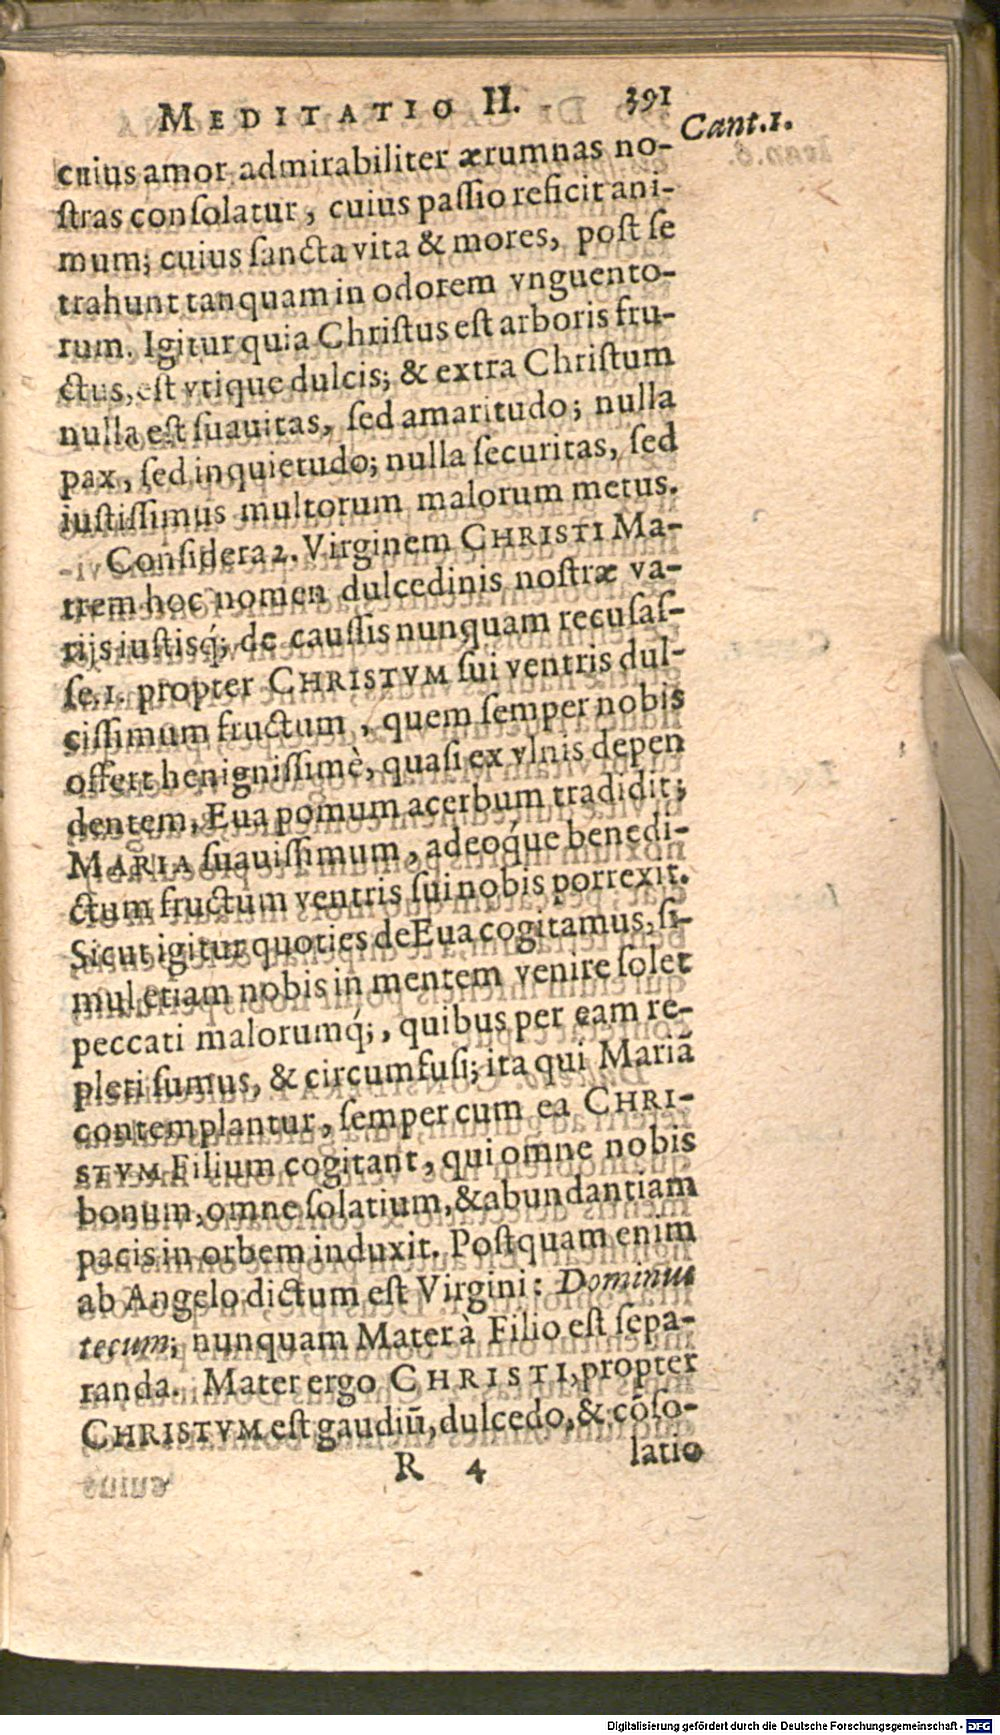 MEDITATIO II. 391
Cant.1.
cuius amor admirabiliter ærumnas no-
ſtras conſolatur, cuius paſſio reficit ani-
mum; cuius ſancta vita & mores, poſt ſe
trahunt tanquam in odorem vnguento-
rum. Igitur quia Chriſtus eſt arboris fru-
ctus, eſt vtique dulcis; & extra Chriſtum
nulla eſt ſuauitas, ſed amaritudo; nulla
pax, ſed inquietudo; nulla ſecuritas, ſed
iuſtiſſimus multorum malorum metus.
Conſidera 2. Virginem CHRISTI Ma-
trem hoc nomen dulcedinis noſtræ va-
rijs iuſtisq́; de cauſſis nunquam recuſaſ-
ſe. 1. propter CHRISTVM ſui ventris dul-
ciſſimum fructum, quem ſemper nobis
offert benigniſſimè, quaſi ex vlnis depen
dentem, Eua pomum acerbum tradidit;
MARIA ſuauiſſimum, adeoq́ue benedi-
ctum fructum ventris ſui nobis porrexit.
Sicut igitur quoties de Eua cogitamus, ſi-
mul etiam nobis in mentem venire ſolet
peccati malorumq́;, quibus per eam re-
pleti ſumus, & circumfuſi; ita qui Mariā
contemplantur, ſemper cum ea CHRI-
STVM Filium cogitant, qui omne nobis
bonum, omne ſolatium, & abundantiam
pacis in orbem induxit. Poſtquam enim
ab Angelo dictum eſt Virgini: Dominus
tecum; nunquam Mater à Filio eſt ſepa-
randa. Mater ergo CHRISTI, propter
CHRISTVM eſt gaudiū, dulcedo, & cōſo-
R 4 latio
Digitalisierung gefördert durch die Deutsche Forschungsgemeinschaft - DFG